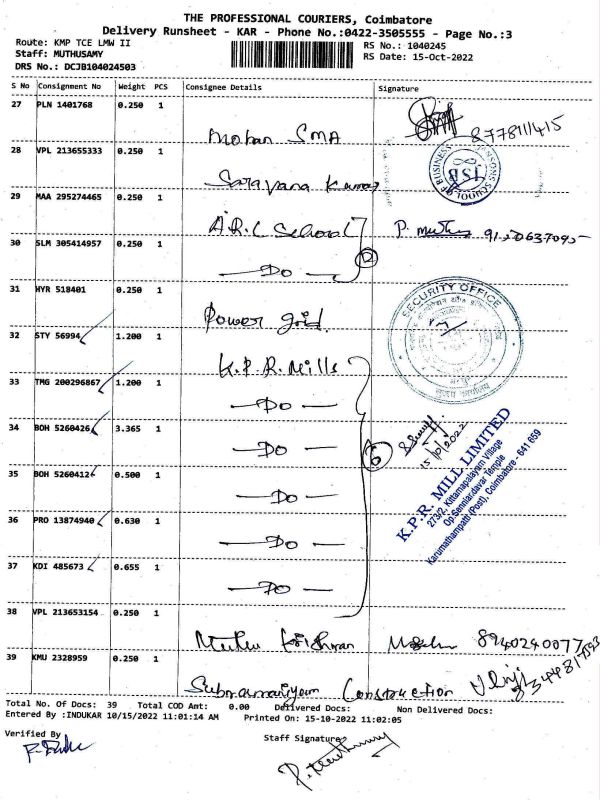 THE PROFESSIONAL COURIERS, Coimbatore
Delivery Runsheet - KAR - Phone No.:0422-3505555 - Page No.:3
Route: KMP TCE LMW II
RS No.: 1040245
Staff: MUTHUSAMY
RS Date: 15-Oct-2022
DRS No.: DCJB104024503
S No Consignment No Weight PCS Consignee Details Signature
27 PLN 1401768 0.250 1
Mohan SMA
8778111415
28 VPL 213655333 0.250 1
Saravana Kumar
SCHOOL OF BUSINESS JSB
29 MAA 295274465 0.250 1
A.R.C School P.
30 SLM 305414957 0.250 1
— Do — 2
31 HYR 518401 0.250 1
Power grid.
SECURITY OFFICE
32 STY 56994 1.200 1
K.P.R. Mills
33 TMG 200296867 1.200 1
— Do —
34 BOH 5260426 3.365 1
— Do — 6
15/10/2022
K.P.R. MILL LIMITED
273/2, Kittamapalayam Village
Op.Senniandavar Temple
Karumathampatti (Post), Coimbatore - 641 659
35 BOH 5260412 0.500 1
— Do —
36 PRO 13874940 0.630 1
— Do —
37 KDI 485673 0.655 1
— Do —
38 VPL 213653154 0.250 1
Muthu Krishnan 8940240077
39 KMU 2328959 0.250 1
Subramaniyam Construction
Total No. Of Docs: 39 Total COD Amt: 0.00 Delivered Docs: Non Delivered Docs:
Entered By :INDUKAR 10/15/2022 11:01:14 AM Printed On: 15-10-2022 11:02:05
Verified By
Staff Signature